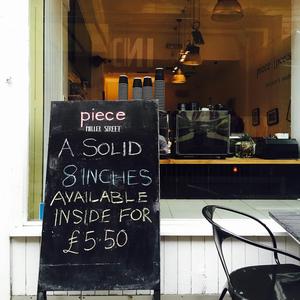 piece
MILLER STREET
A SOLID
8 INCHES
AVAILABLE
INSIDE FOR
£5.50